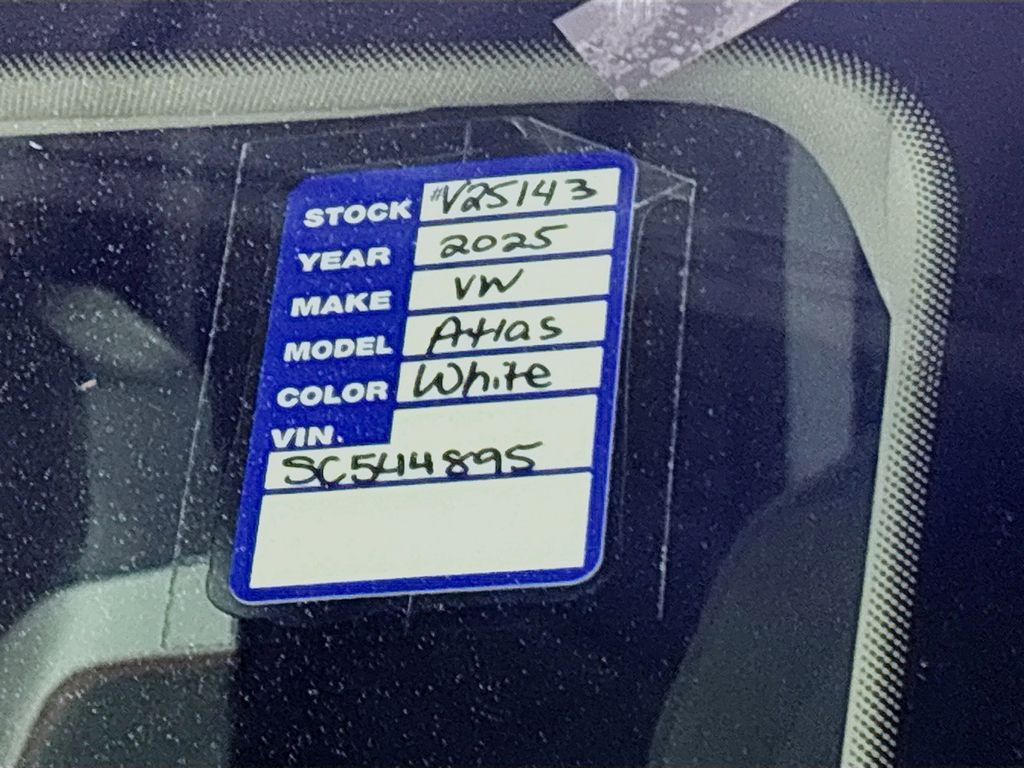 STOCK #V25143
YEAR 2025
MAKE VW
MODEL Atlas
COLOR White
VIN.
SC544895